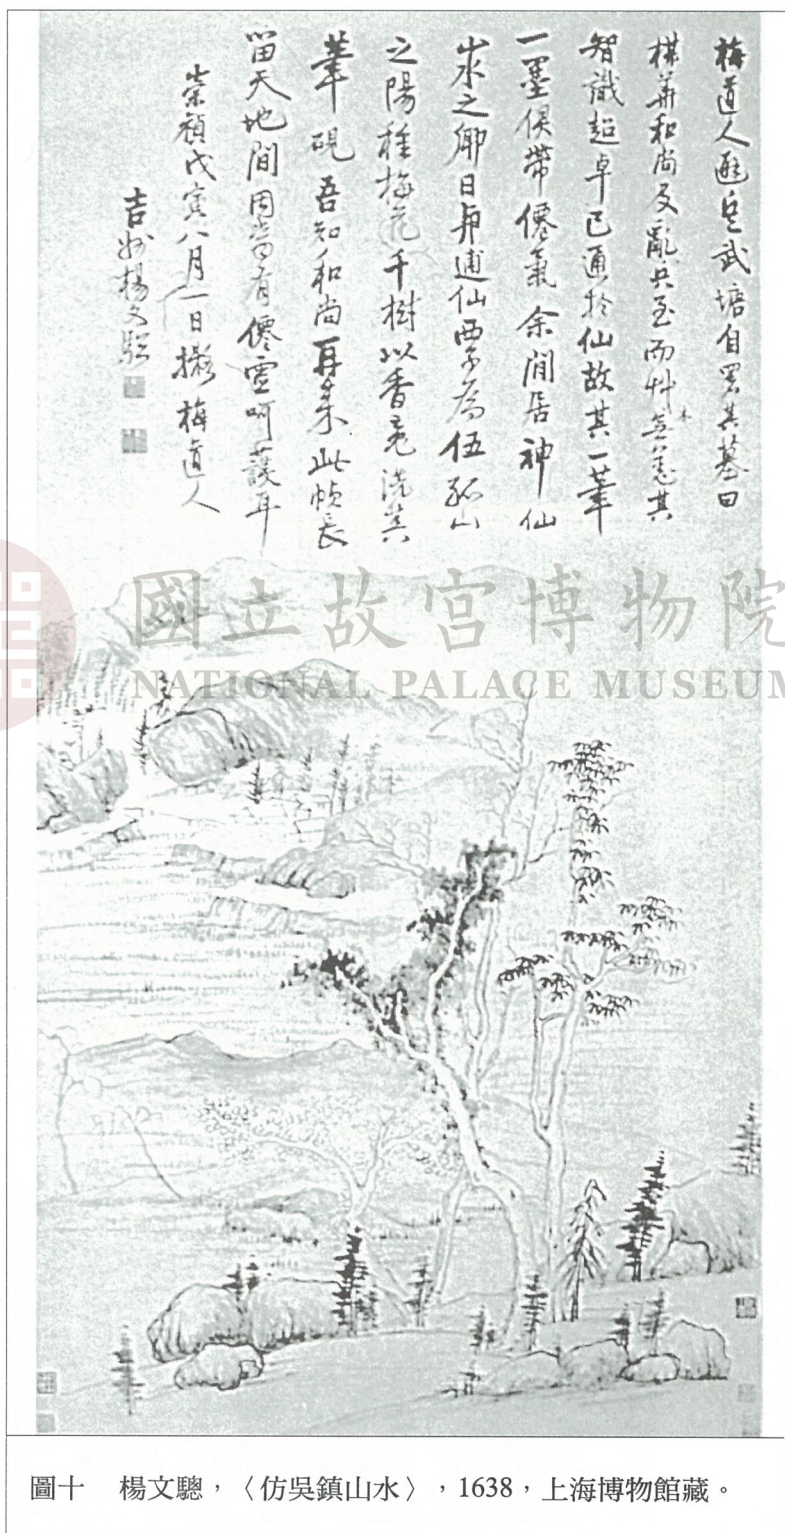 梅道人避兵武塘自署其墓曰
梅華和尚及亂兵至而艸木無恙其
智識超卓已通於仙故其一筆
一墨俱帶僊氣余閒居神仙
山水之鄉日與逋仙西子為伍孤山
之陽種梅花千樹以香雪洗其
筆硯吾知和尚再來此幀長
留天地間固當有僊靈呵護耳
崇禎戊寅八月一日擬梅道人
吉州楊文驄
國立故宮博物院
NATIONAL PALACE MUSEUM
圖十 楊文驄,〈仿吳鎮山水〉,1638,上海博物館藏。